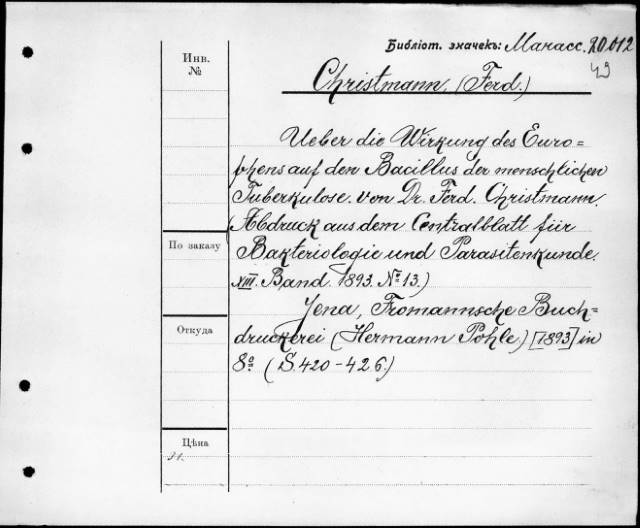 Библіот. значекъ: Манасс. 20.012
49
Инв.
№
Christmann, (Ferd.)
Ueber die Wirkung des Euro=
phens auf den Bacillus der menschlichen
Tuberkulose. von Dr. Ferd. Christmann.
(Abdruck aus dem Centralblatt für
По заказу
Bakteriologie und Parasitenkunde.
XIII. Band. 1893. № 13.)
Jena, Fromannsche Buch=
Откуда
druckerei (Hermann Pohle) [1893] in
8º (S. 420-426.)
Цѣна